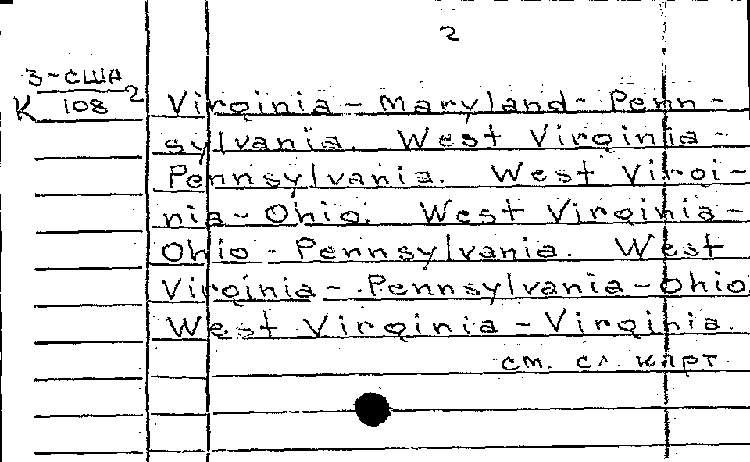 2
3-США
К 108 2
Virginia - Maryland - Penn-
sylvania. West Virginia -
Pennsylvania. West Virgi-
nia - Ohio. West Virginia -
Ohio - Pennsylvania. West
Virginia - Pennsylvania - Ohio
West Virginia - Virginia.
см. сл. карт